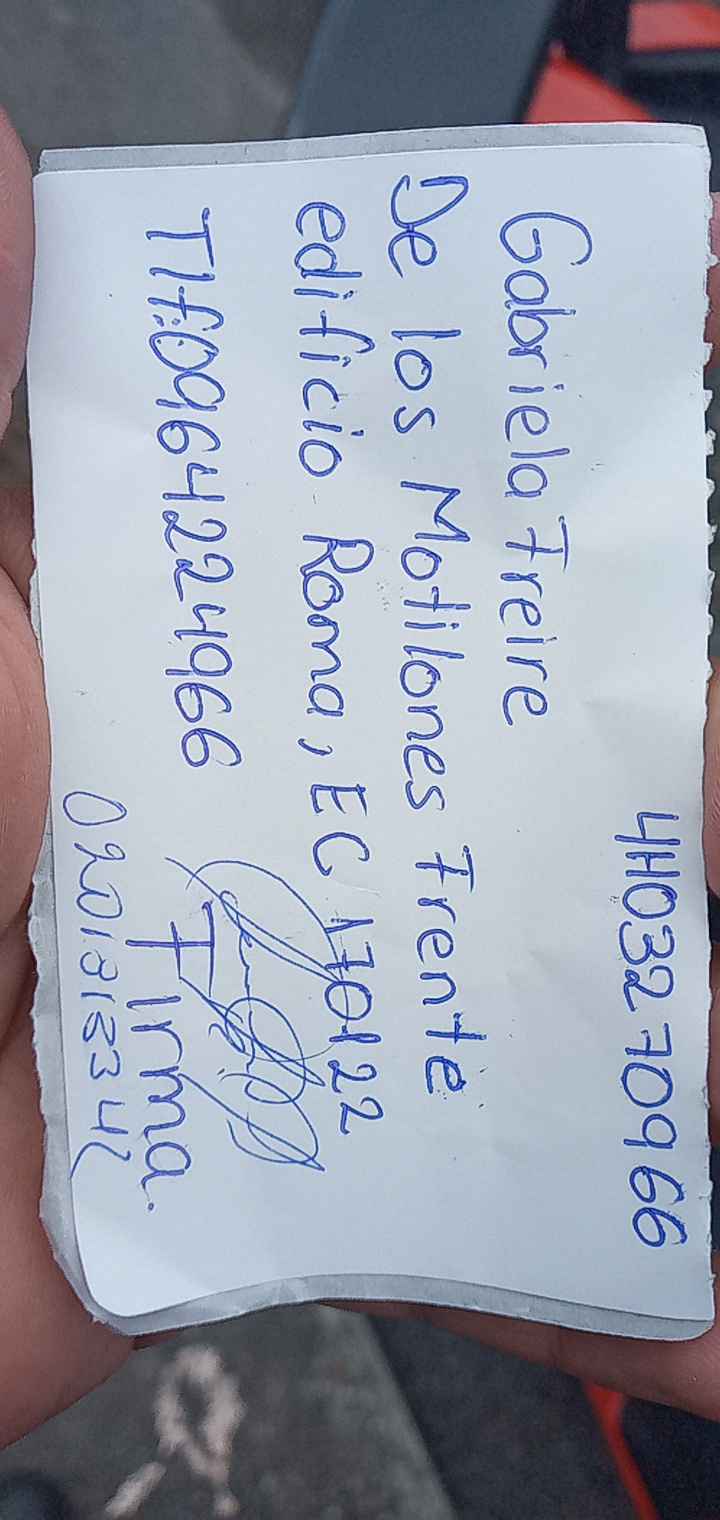 41103270966
Gabriela Freire
De los Motilones Frente
edificio Roma, EC 170122
Tlf:0964224966
Firma.